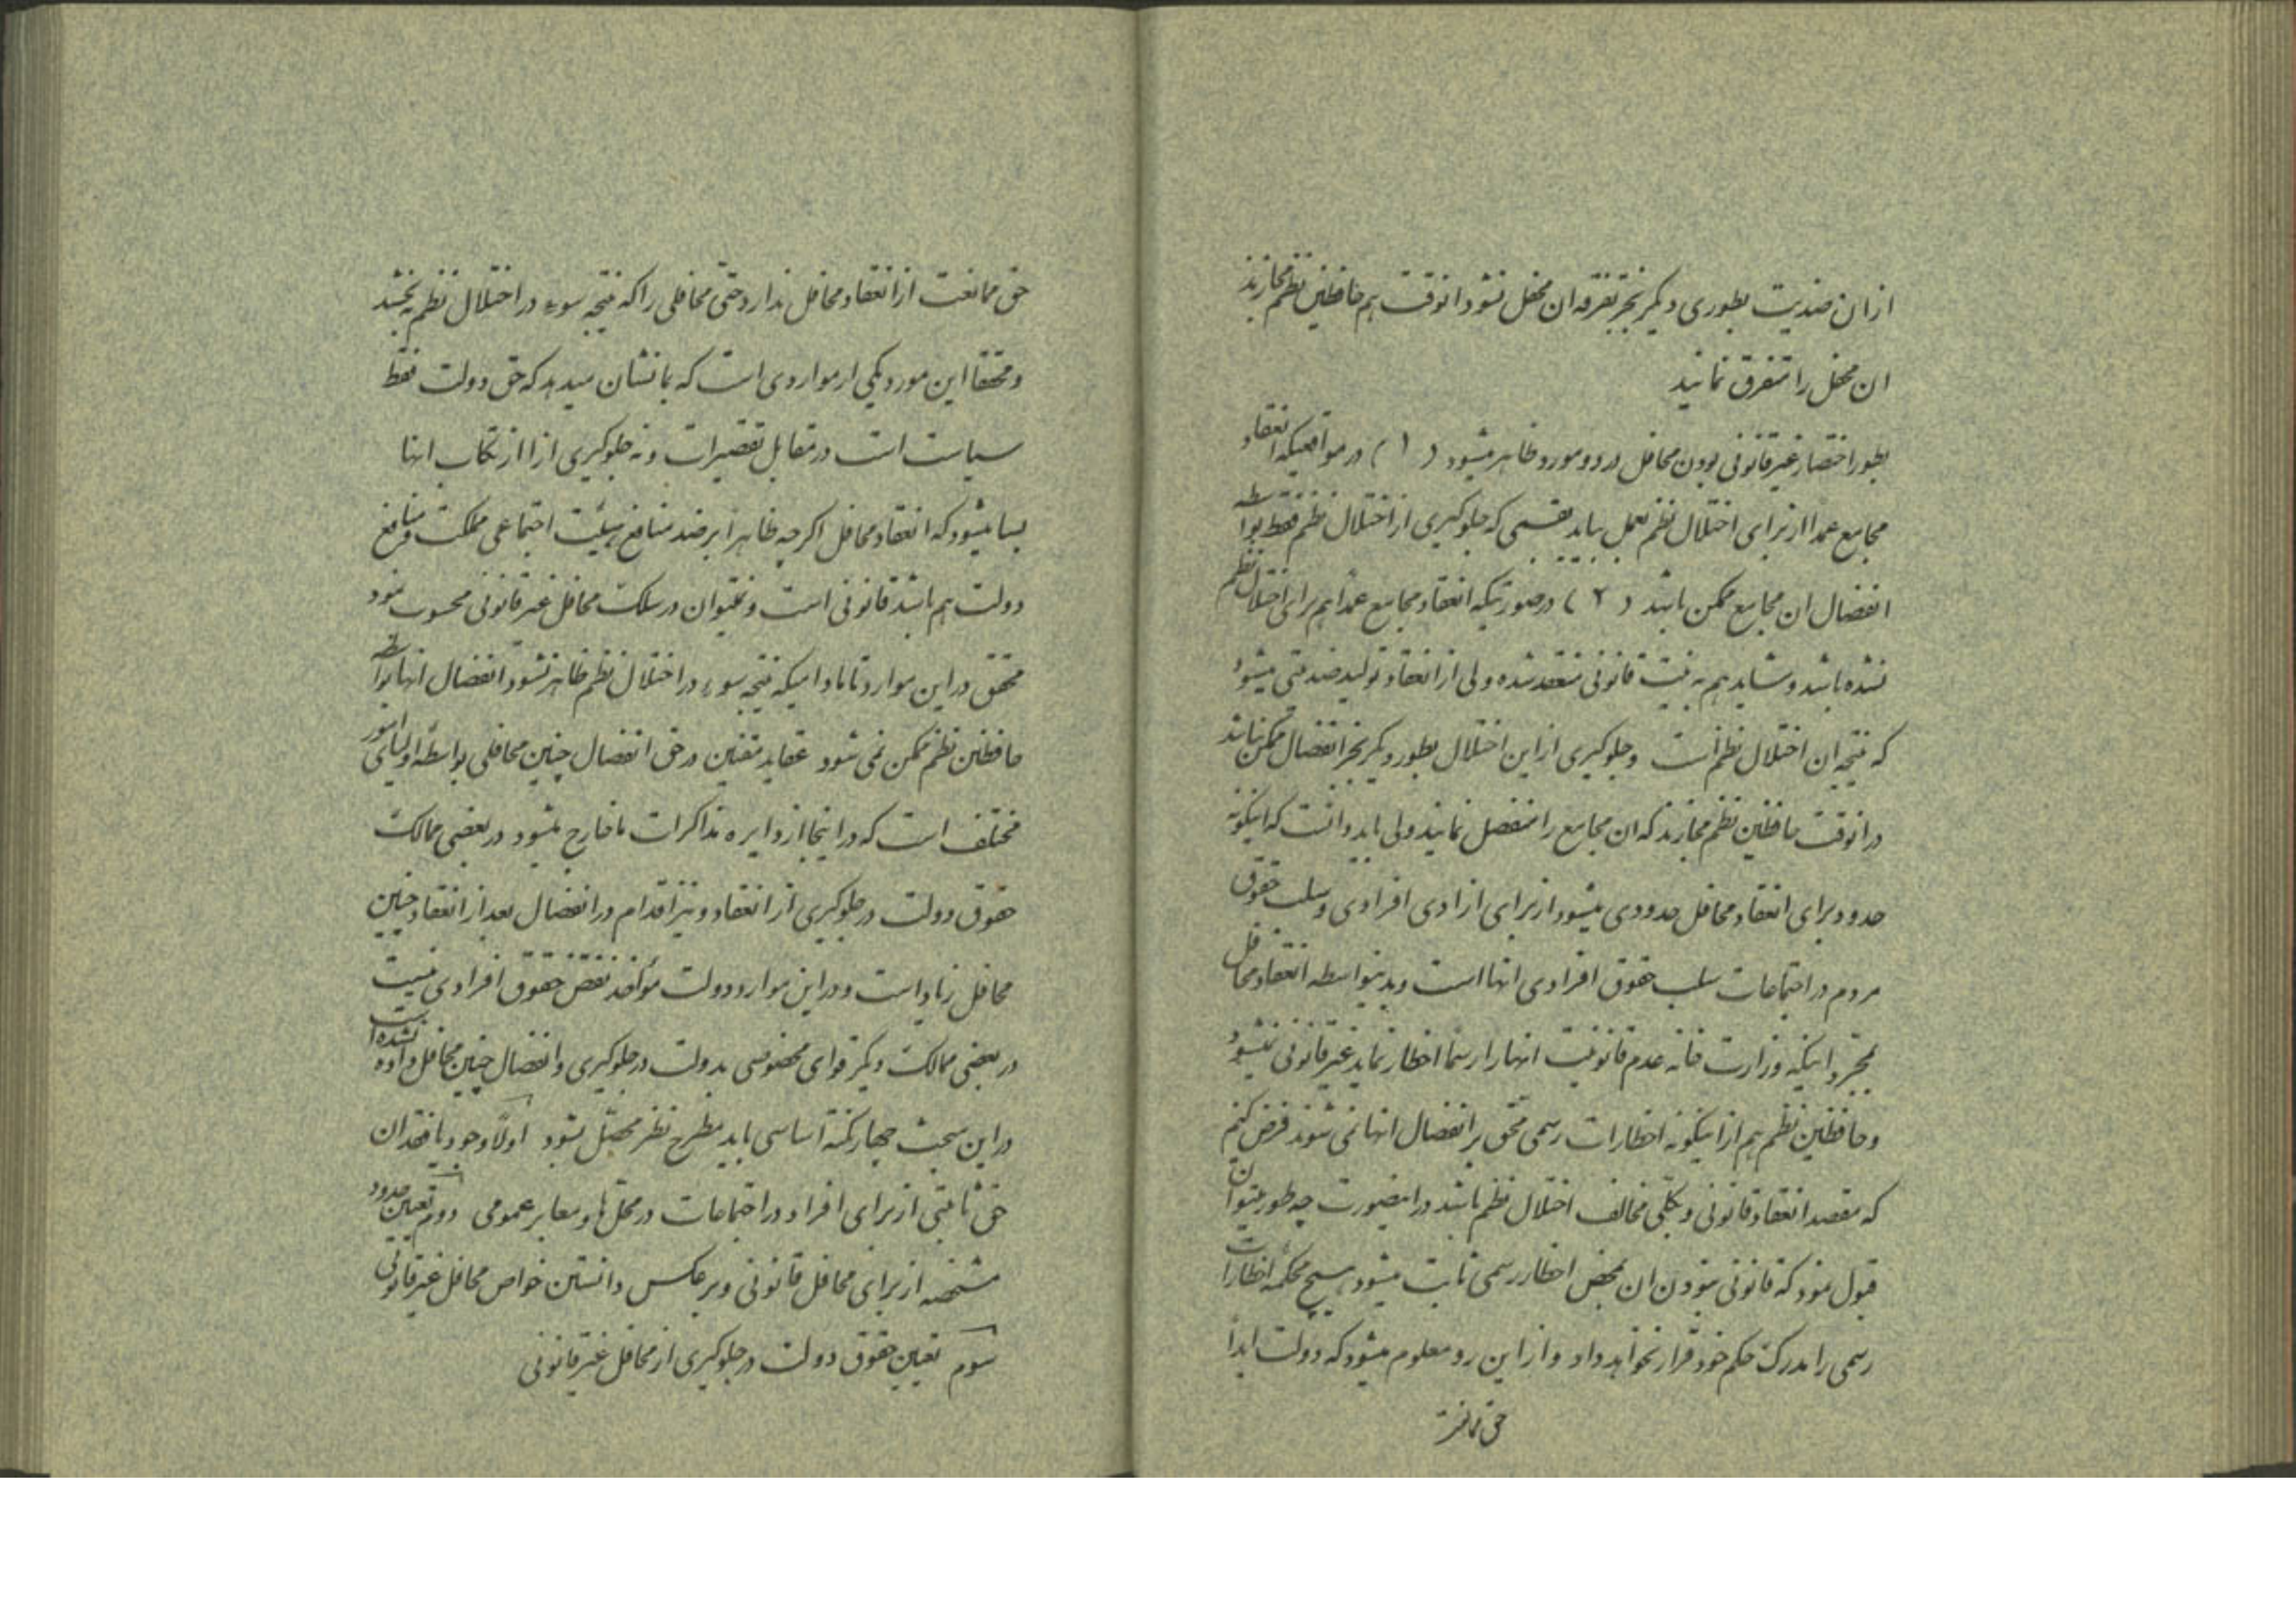 از ان ضدیت بطوری دیگر بجز تفرقه ان محفل نشود انوقت هم حافظین نظم مجازند
ان محفل را متفرق نمایند
بطور اختصار غیر قانونی بودن محافل در دو مورد ظاهر میشود ( ۱ ) در مواقعیکه انعقاد
مجامع عمداً از برای اختلال نظم بعمل بیاید بقسمی که جلوگیری از اختلال نظم فقط بواسطه
انفصال ان مجامع ممکن باشد ( ۲ ) در صورتیکه انعقاد مجامع عمداً هم برای اختلال نظم
نشده باشد و شاید هم به نیت قانونی منعقد شده ولی از انعقاد تولید ضدیتی میشود
که نتیجه ان اختلال نظم است و جلوگیری از این اختلال بطور دیگر بجز انفصال ممکن نباشد
در انوقت حافظین نظم مجازند که ان مجامع را منفصل نمایند ولی باید دانست که اینگونه
حدود برای انعقاد محافل حدودی میشود از برای ازادی افرادی و سلب حقوق
مردم در اجتماعات سلب حقوق افرادی انها است و بدینواسطه انعقاد محافل
بمجرد اینکه وزارت خانه عدم قانونیت انهارا رسماً اخطار نماید غیر قانونی نمیشود
و حافظین نظم هم از اینگونه اخطارات رسمی محق بر انفصال انها نمی شوند فرض کنیم
که مقصد انعقاد قانونی و بکلی مخالف اختلال نظم باشد در اینصورت چه طور میتوان
قبول نمود که قانونی نبودن ان بمحض اخطار رسمی ثابت میشود هیچ محکمه اخطارات
رسمی را مدرک حکم خود قرار نخواهد داد و از این رو معلوم میشود که دولت ابداً
حق ممانعت
حق ممانعت از انعقاد محافل ندارد حتی محافلی را که نتیجه سوء در اختلال نظم بخشد
و محققا این مورد یکی از مواردی است که بما نشان میدهد که حق دولت فقط
سیاست است در مقابل تقصیرات و نه جلوگیری از ارتکاب انها
بسا میشود که انعقاد محافل اگرچه ظاهراً بر ضد منافع هیئت اجتماعی مملکت و منافع
دولت هم باشد قانونی است و نمیتوان در سلک محافل غیر قانونی محسوب نمود
محقق در این موارد تا مادامیکه نتیجه سوء در اختلال نظم ظاهر نشود انفصال انها بواسطه
حافظین نظم ممکن نمی شود عقاید مقنین در حق انفصال چنین محافلی بواسطه اولیای امور
مختلف است که در اینجا از دایره مذاکرات ما خارج میشود در بعضی ممالک
حقوق دولت در جلوگیری از انعقاد و نیز اقدام در انفصال بعد از انعقاد چنین
محافل زیاد است و در این موارد دولت مؤاخذ نقض حقوق افرادی نیست
در بعضی ممالک دیگر قوای مخصوصی بدولت در جلوگیری و انفصال چنین محافل داده نشده است
در این مبحث چهار نکته اساسی باید مطرح نظر محصّل بشود اولاً وجود یا فقدان
حق ثابتی از برای افراد در اجتماعات در محل ها و معابر عمومی دوم تعیین حدود
مشخصه از برای محافل قانونی و برعکس دانستن خواص محافل غیر قانونی
سوم تعیین حقوق دولت در جلوگیری از محافل غیر قانونی